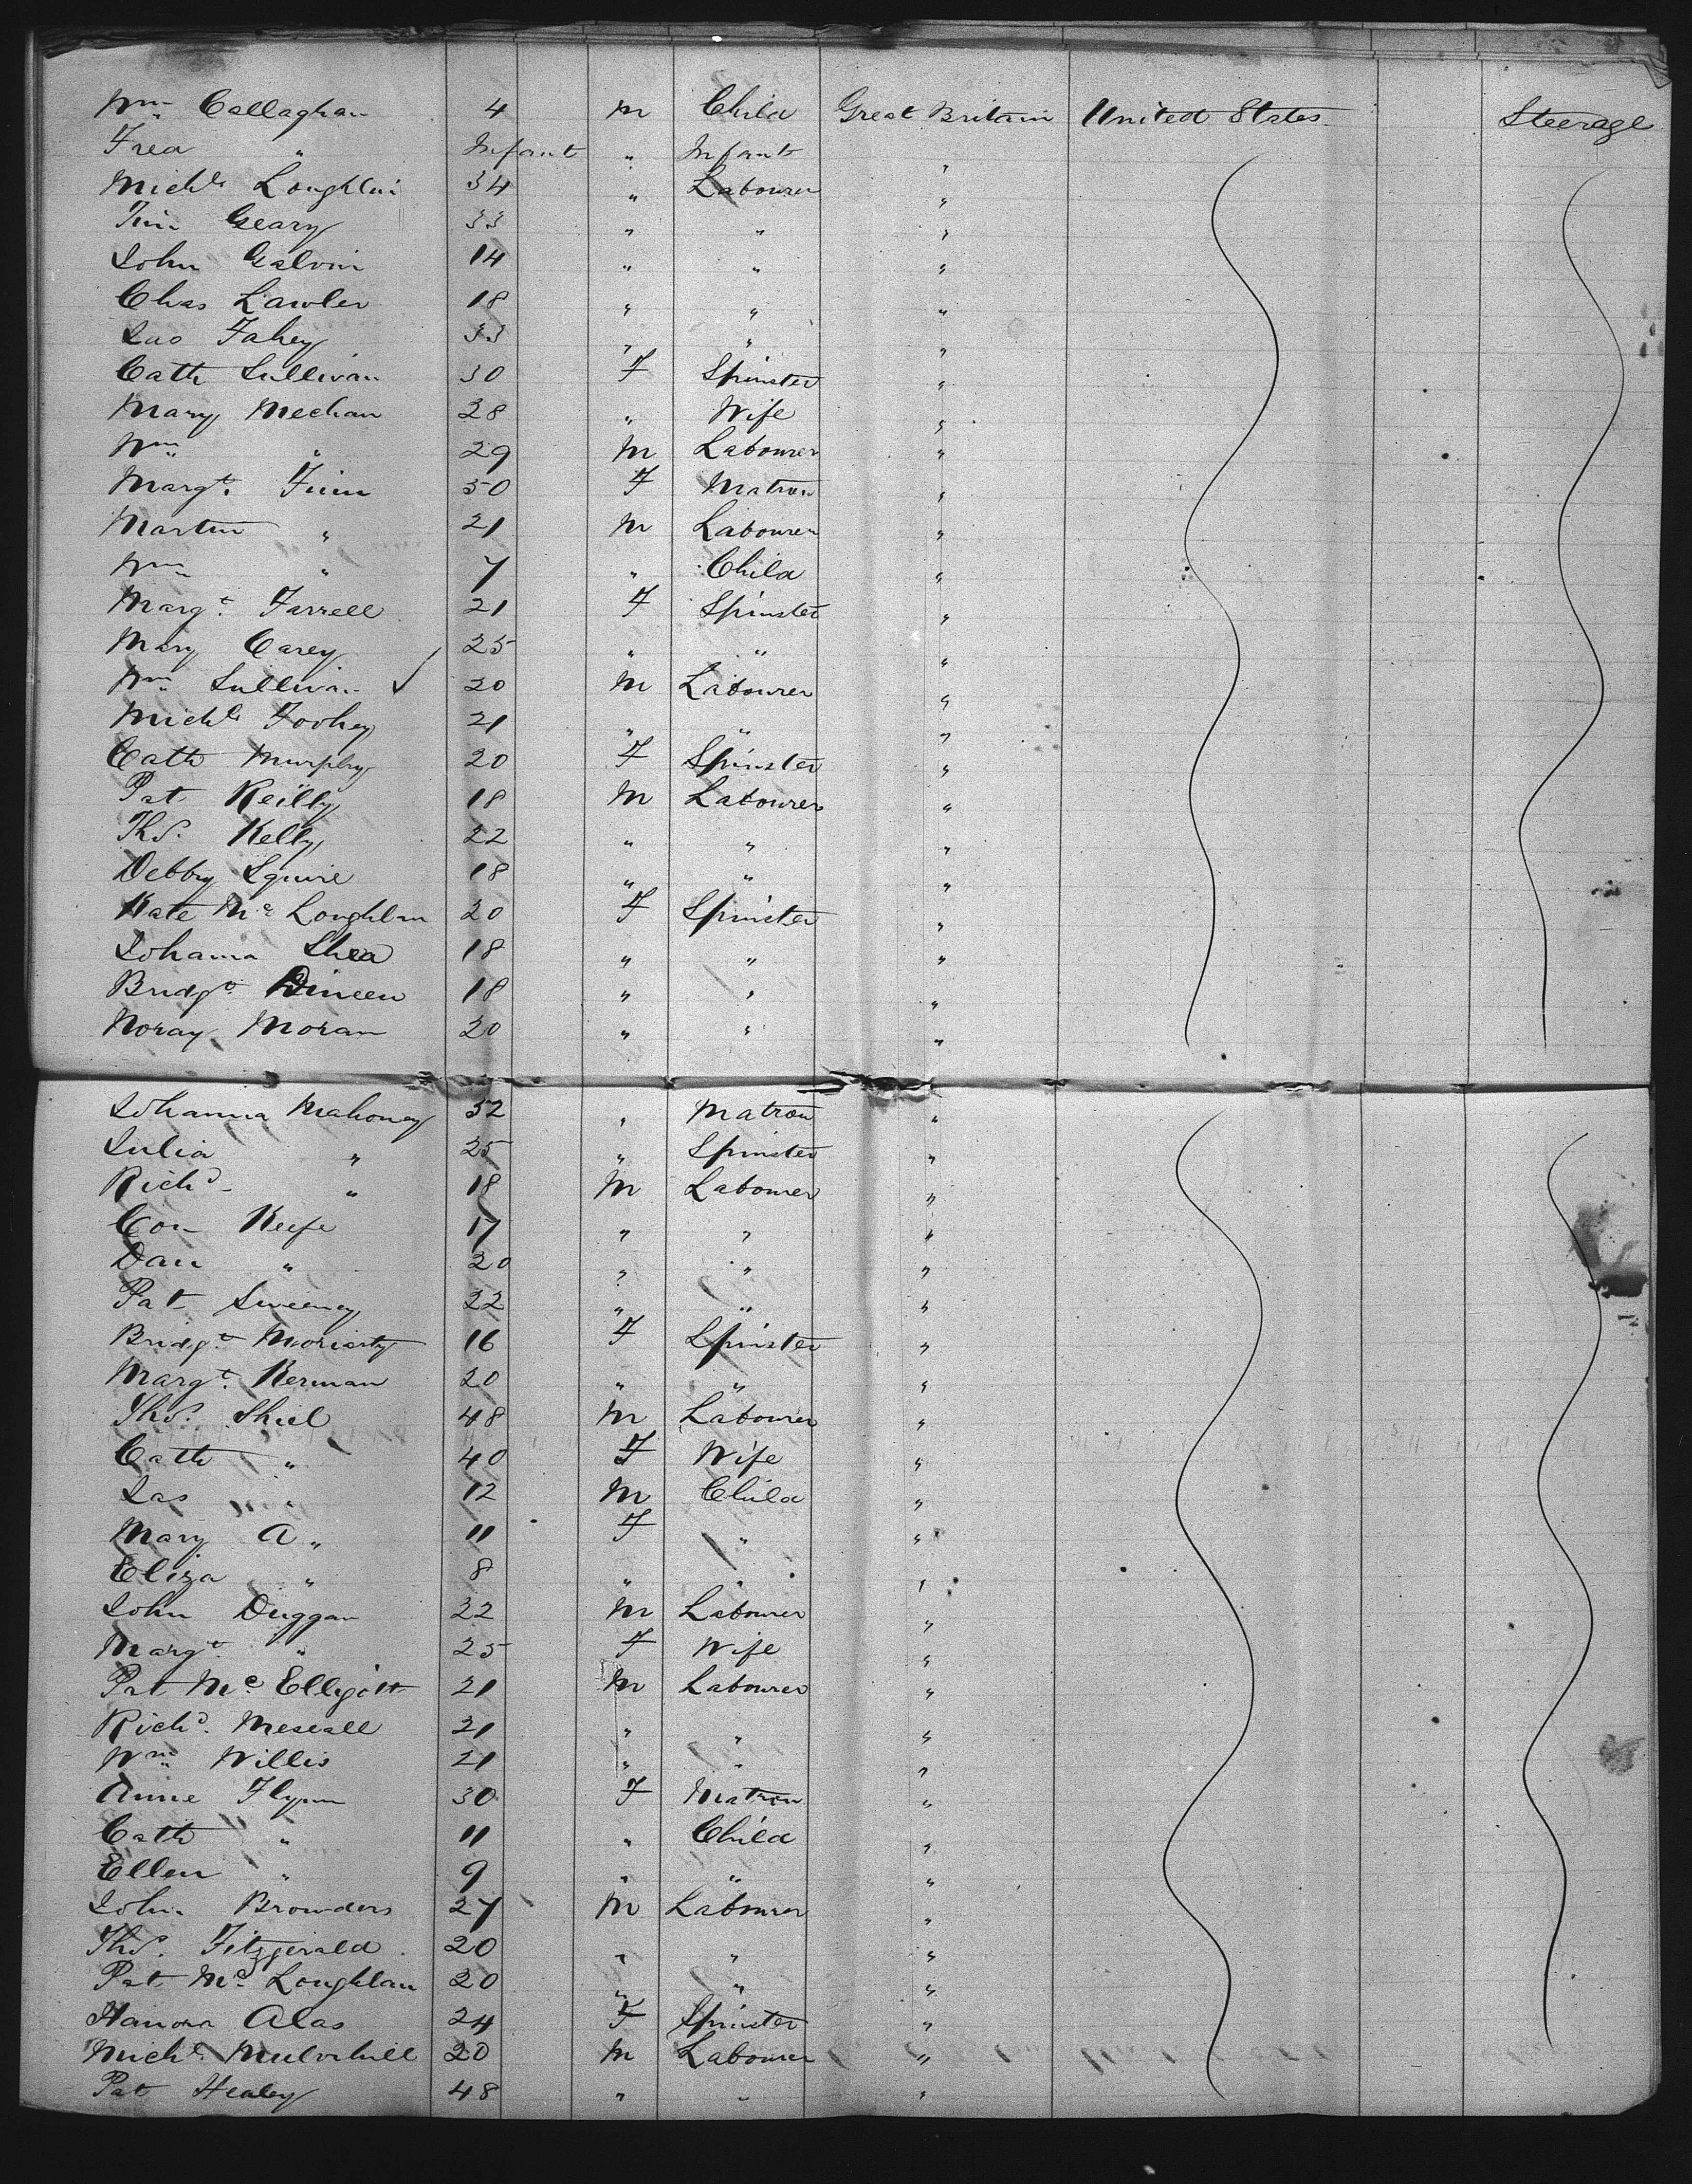 Wm Callaghan 4 M Child Great Britain United States Steerage
Fred " Infant " Infant "
Michl Loughlin 34 " Labourer "
Tim Geary 33 " " "
John Galvin 14 " " "
Chas Lawler 18 " " "
Jas Fahey 33 " " "
Cath Sullivan 30 F Spinster "
Mary Meehan 28 " Wife "
Wm " 29 M Labourer "
Margt. Finn 50 F Matron "
Martin " 21 M Labourer "
Wm " 7 " Child "
Margt. Farrell 21 F Spinster "
Mary Carey 25 " " "
Wm Sullivan ✓ 20 M Labourer "
Michl Foohey 21 " " "
Cath Murphy 20 F Spinster "
Pat Reilly 18 M Labourer "
Thos. Kelly 22 " " "
Debby Squire 18 " " "
Kate Mc Loughlin 20 F Spinster "
Johanna Shea 18 " " "
Bridgt Dineen 18 " " "
Noray Moran 20 " " "
Johanna Mahoney 52 " Matron "
Julia " 25 " Spinster "
Richd " 18 M Labourer "
Con Keefe 17 " " "
Dan " 20 " " "
Pat Sweeney 22 " " "
Bridgt. Moriarty 16 F Spinster "
Margt. Kerman 20 " " "
Thos. Shiel 48 M Labourer "
Cath " 40 F Wife "
Jas " 12 M Child "
Mary A " 11 F " "
Eliza " 8 " " "
John Duggan 22 M Labourer "
Margt. " 25 F Wife "
Pat Mc Elligott 21 M Labourer "
Richd. 21 " " "
Wm Willis 21 " " "
Anne Flynn 30 F Matron "
Cath " 11 " Child "
Ellen " 9 " " "
John Browders 27 M Labourer "
Thos. Fitzgerald 20 " " "
Pat Mc Loughlan 20 " " "
Hanora Alas 24 F Spinster "
Michl Mulvihill 20 M Labourer "
Pat Healey 48 " " "